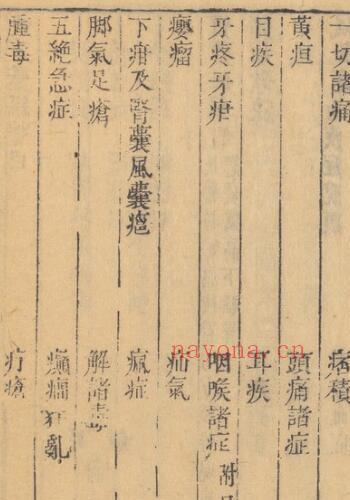 一切諸痛 痞積
黃疸 頭痛諸症
目疾 耳疾
牙疼牙疳 咽喉諸症 附
癭瘤 疝氣
下疳及腎囊風囊癰 瘋症
脚氣足瘡 解諸毒
五絶急症 癲癇狂亂
腫毒 疔瘡
nayona.cn